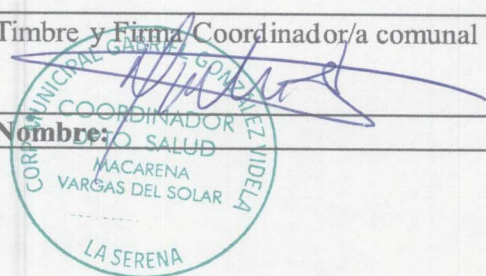 Timbre y Firma Coordinador/a comunal
CORP. MUNICIPAL GABRIEL GONZALEZ VIDELA
COORDINADOR
DPTO. SALUD
Nombre:
MACARENA
VARGAS DEL SOLAR
LA SERENA